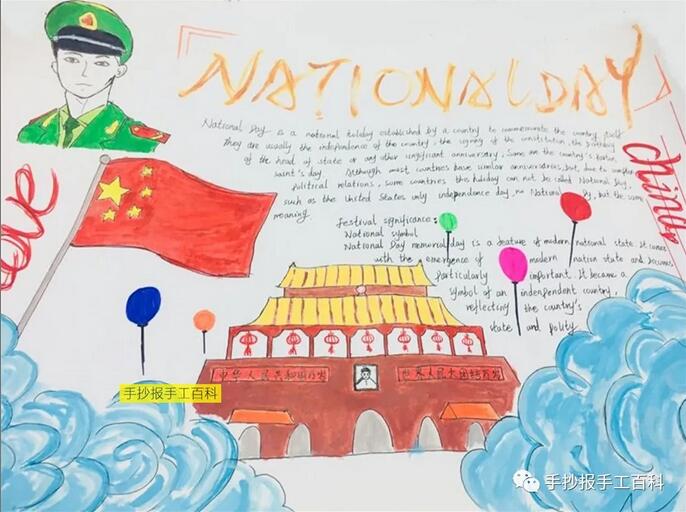 NATIONAL DAY
love
china
National Day is a national holiday established by a country to commemorate the country itself
They are usually the independence of the country, the signing of the constitution, the birthday
of the head of state or any other significant anniversary. Some are the country's patron
saint's day. Although most countries have similar anniversaries, but, due to complex
political relations, some countries this holiday can not be called National Day,
such as the United States only independence day, no National Day, but the same
meaning.
Festival significance:
National symbol
National Day memorial day is a feature of modern national state. It comes
with the emergence of modern nation state and becomes
particularly important. It became a
symbol of an independent country,
reflecting the country's
state and polity
中华人民共和国万岁
世界人民大团结万岁
手抄报手工百科
手抄报手工百科